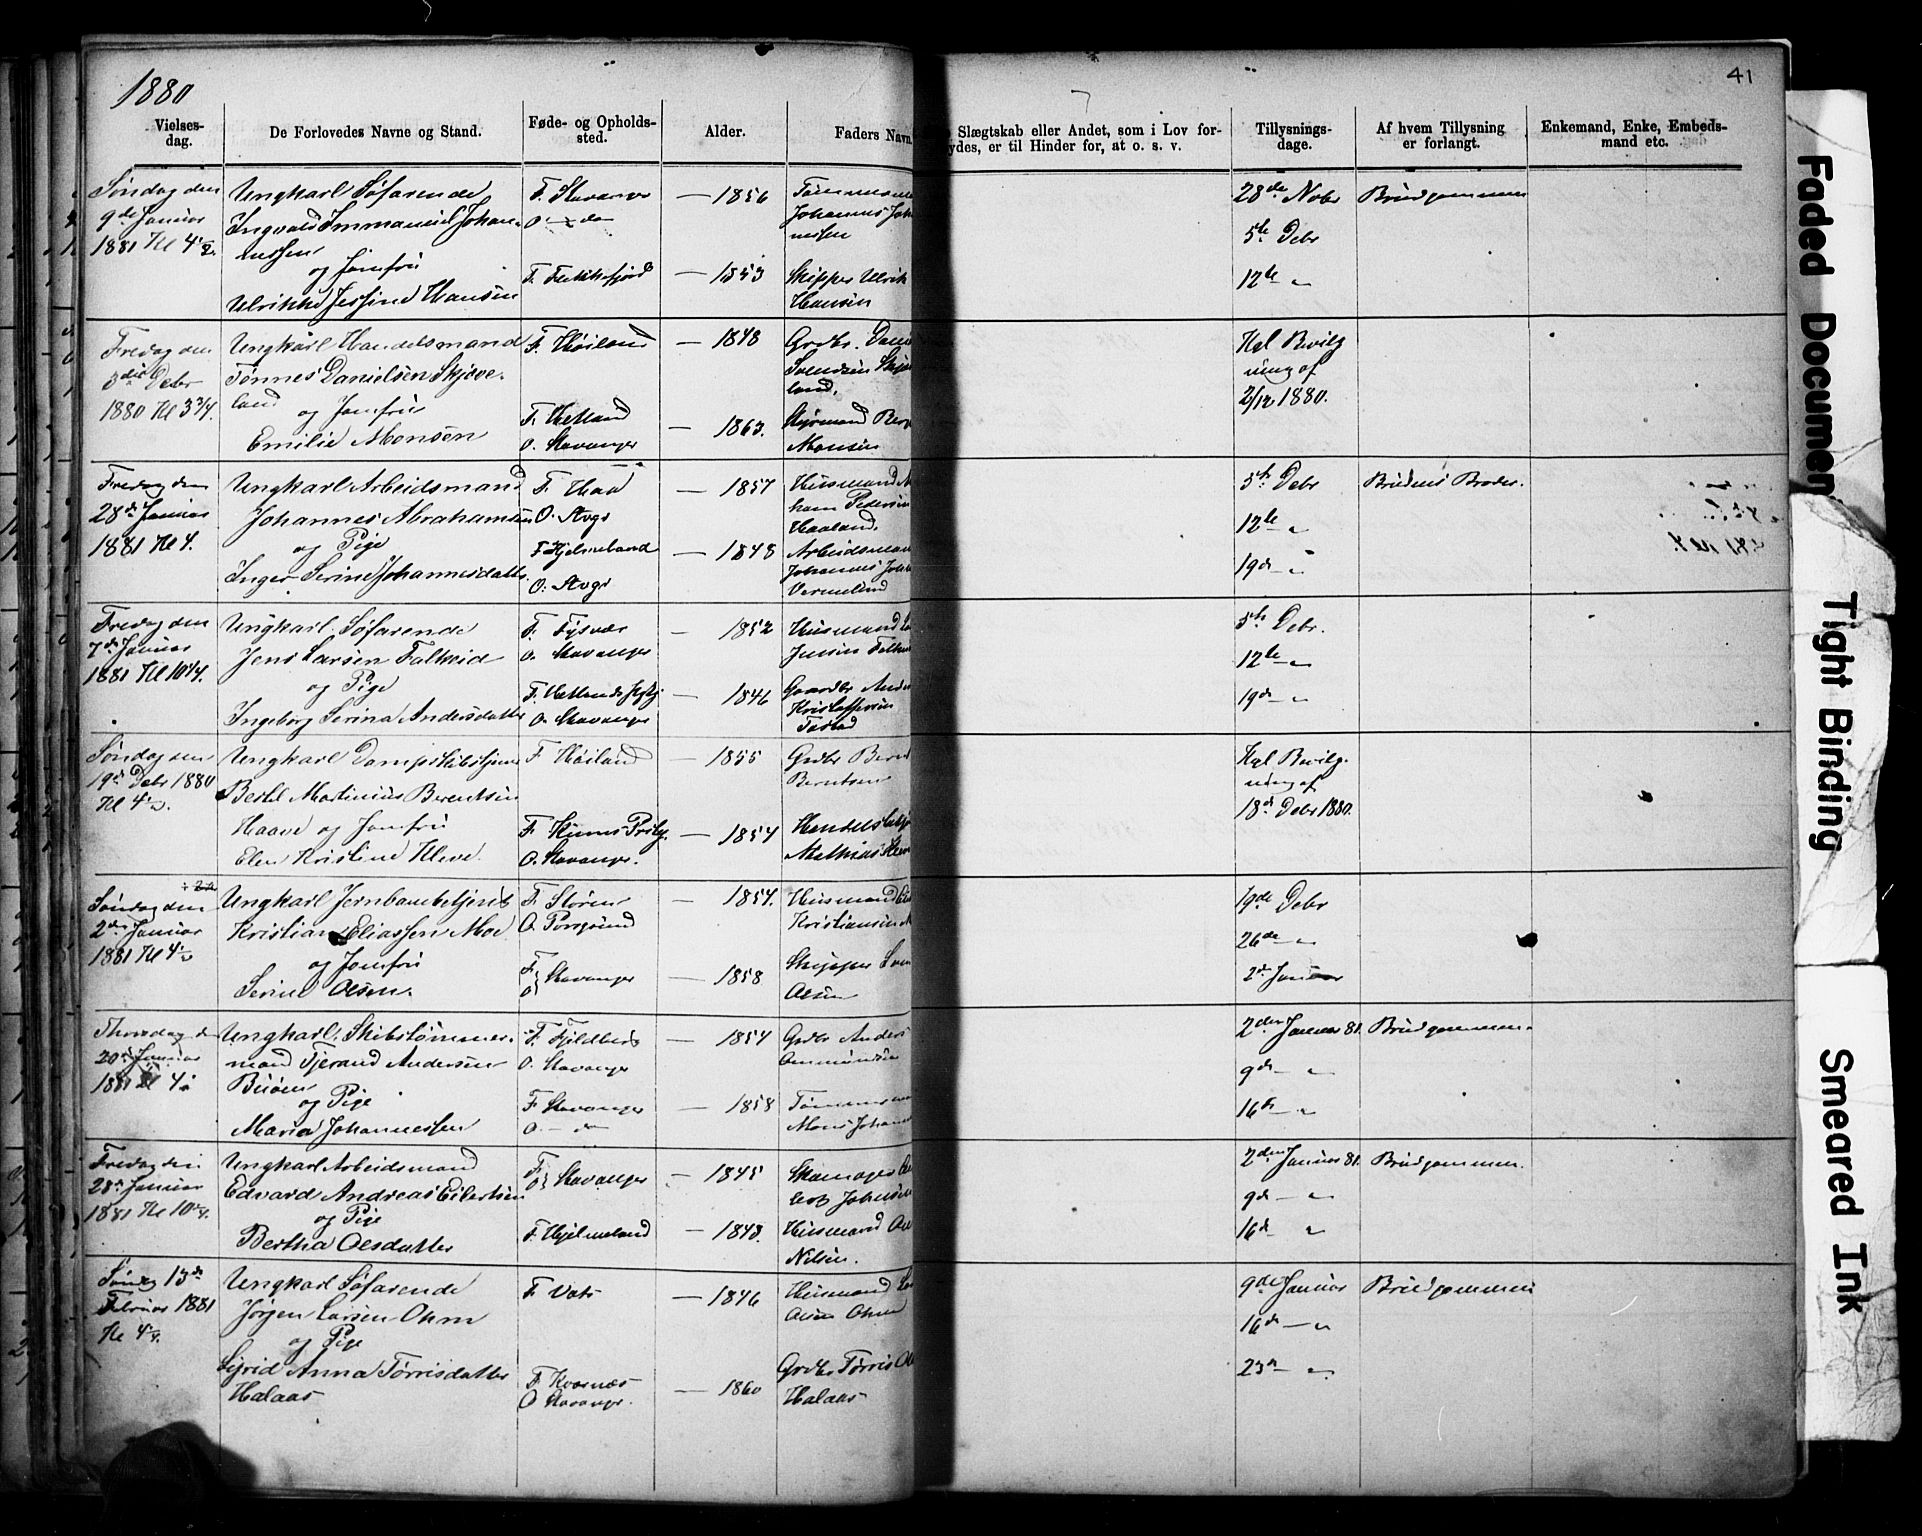 1880
41
Vielses-
dag.
De Forlovedes Navne og Stand.
Føde- og Opholds-
sted.
Alder.
Faders Navn.
Slægtskab eller Andet, som i Lov for-
ydes, er til Hinder for, at o. s. v.
Tillysnings-
dage.
Af hvem Tillysning
er forlangt.
Enkemand, Enke, Embeds-
mand etc.
Søndag den
9de Januar
1881 Kl 4 1/2
Ungkarl Søfarende
Ingvald Immanuel Johan-
nessen
og Jomfru
Ulrikke Jessine Hansen
F. Stavanger
O. — do
F. Flekkefjord
— 1856
— 1853
Tømmerm
Johannes Joh
nessen
Skipper Ulrik
Hansen
28de Nobr
5te Debr
12te "
Brudgommen
Fredag den
3die Debr
1880 Kl 3 3/4
Ungkarl Handelsmand
Tønnes Danielsen Skjæve-
land
og Jomfru
Emilie Monsen
F. Høiland
F. Hetland
O. Stavanger
— 1848
— 1863.
Grdbr. Dani
Svendsen Skjæ
land.
Styrmand Ber
Monsen
Kgl Bevilg
ning af
2/12 1880.
Fredag den
28de Januar
1881 Kl 4.
Ungkarl Arbeidsmand
Johannes Abrahamsen
og Pige
Inger Serine Johannesdatter
F. Haa
O. Stvgr
F Hjelmeland
O. Stvgr
— 1857
— 1848
Husmand A
ham Pedersen
Haaland.
Arbeidsman
Johannes Joh
5te Debr
12te "
19de "
Brudens Broder.
Fredag den
7de Januar
1881 Kl 10 1/4.
Ungkarl Søfarende
Jens Larsen Falkeid
og Pige
Ingeborg Serina Andersdatter
F. Tysvær
O. Stavanger
F. Hetlands
O. Stavanger
— 1852
— 1846
Husmand La
Jensen Falke
Gaardbr Ander
Kristoffersen
Tasted
5te Debr.
12te "
19de "
Søndag den
19de Debr 1880
Kl 4 1/2.
Ungkarl Dampskibstjener
Bertel Martinius Berentsen
Haave og Jomfru
Elen Kristine Kleve.
F Høiland
F.
O. Stavanger.
— 1855
— 1854
Grdbr Beren
Berentsen
Mathias
Kgl Bevilg-
ning af
18de Debr 1880.
Søndag den
2den Januar
1881 Kl 4 1/2
Ungkarl Jernbanebetjent
Kristian Eliassen Moe
og Jomfru
Serine Olsen.
F Støren
O Porsgrund
F
O Stavanger
— 1854.
— 1858
Husmand Eli
Kristiansen M
Skipper
Olsen
19de Debr
26de "
2de Januar
Thorsdag d
20de Januar
1881 Kl 4
Ungkarl. Skibstømmer-
mand Tjerand Andersen
Buøen
og Pige
Maria Johannessen
F. Fjeldberg
O. Stavanger
F Stavanger
O. — do
— 1854
— 1858
Grdbr Anders
Ommundsen
Tømmerma
Mons Johann
2den Januar 81.
9de "
16de "
Brudgommen.
Fredag den
28de Januar
1881 Kl 10 1/4.
Ungkarl Arbeidsmand
Edvard Andreas Eilertsen
og Pige
Bertha Olsdatter
F
O Stavanger
F. Hjelmeland
— 1845
— 1843.
Skomager Ei
lert Johnsen
Husmand
Nilsen.
2den Januar 81.
9de "
16de "
Brudgommen.
Søndag 13de
Februar 1881
Kl 4 1/4.
Ungkarl Søfarende
Jørgen Larsen Ohm
og Pige
Sigrid Anna Tørrisdatter
Halaas
F Vats
F. Kværnæs
O Stavanger.
— 1846
— 1860
Husmand La
Olsen Ohm
Grdbr Tørris Ol
Halaas
9de Januar
16de "
23de "
Brudgommen
Faded Documen
Tight Binding
Smeared Ink